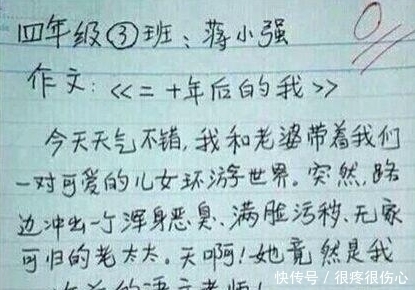 四年级③班：蒋小强
0
作文：<<二十年后的我>>
今天天气不错，我和老婆带着我们
一对可爱的儿女环游世界。突然，路
边冲出一个浑身恶臭、满脸污秽、无家
可归的老太太。天啊！她竟然是我
快传号 / 很疼很伤心